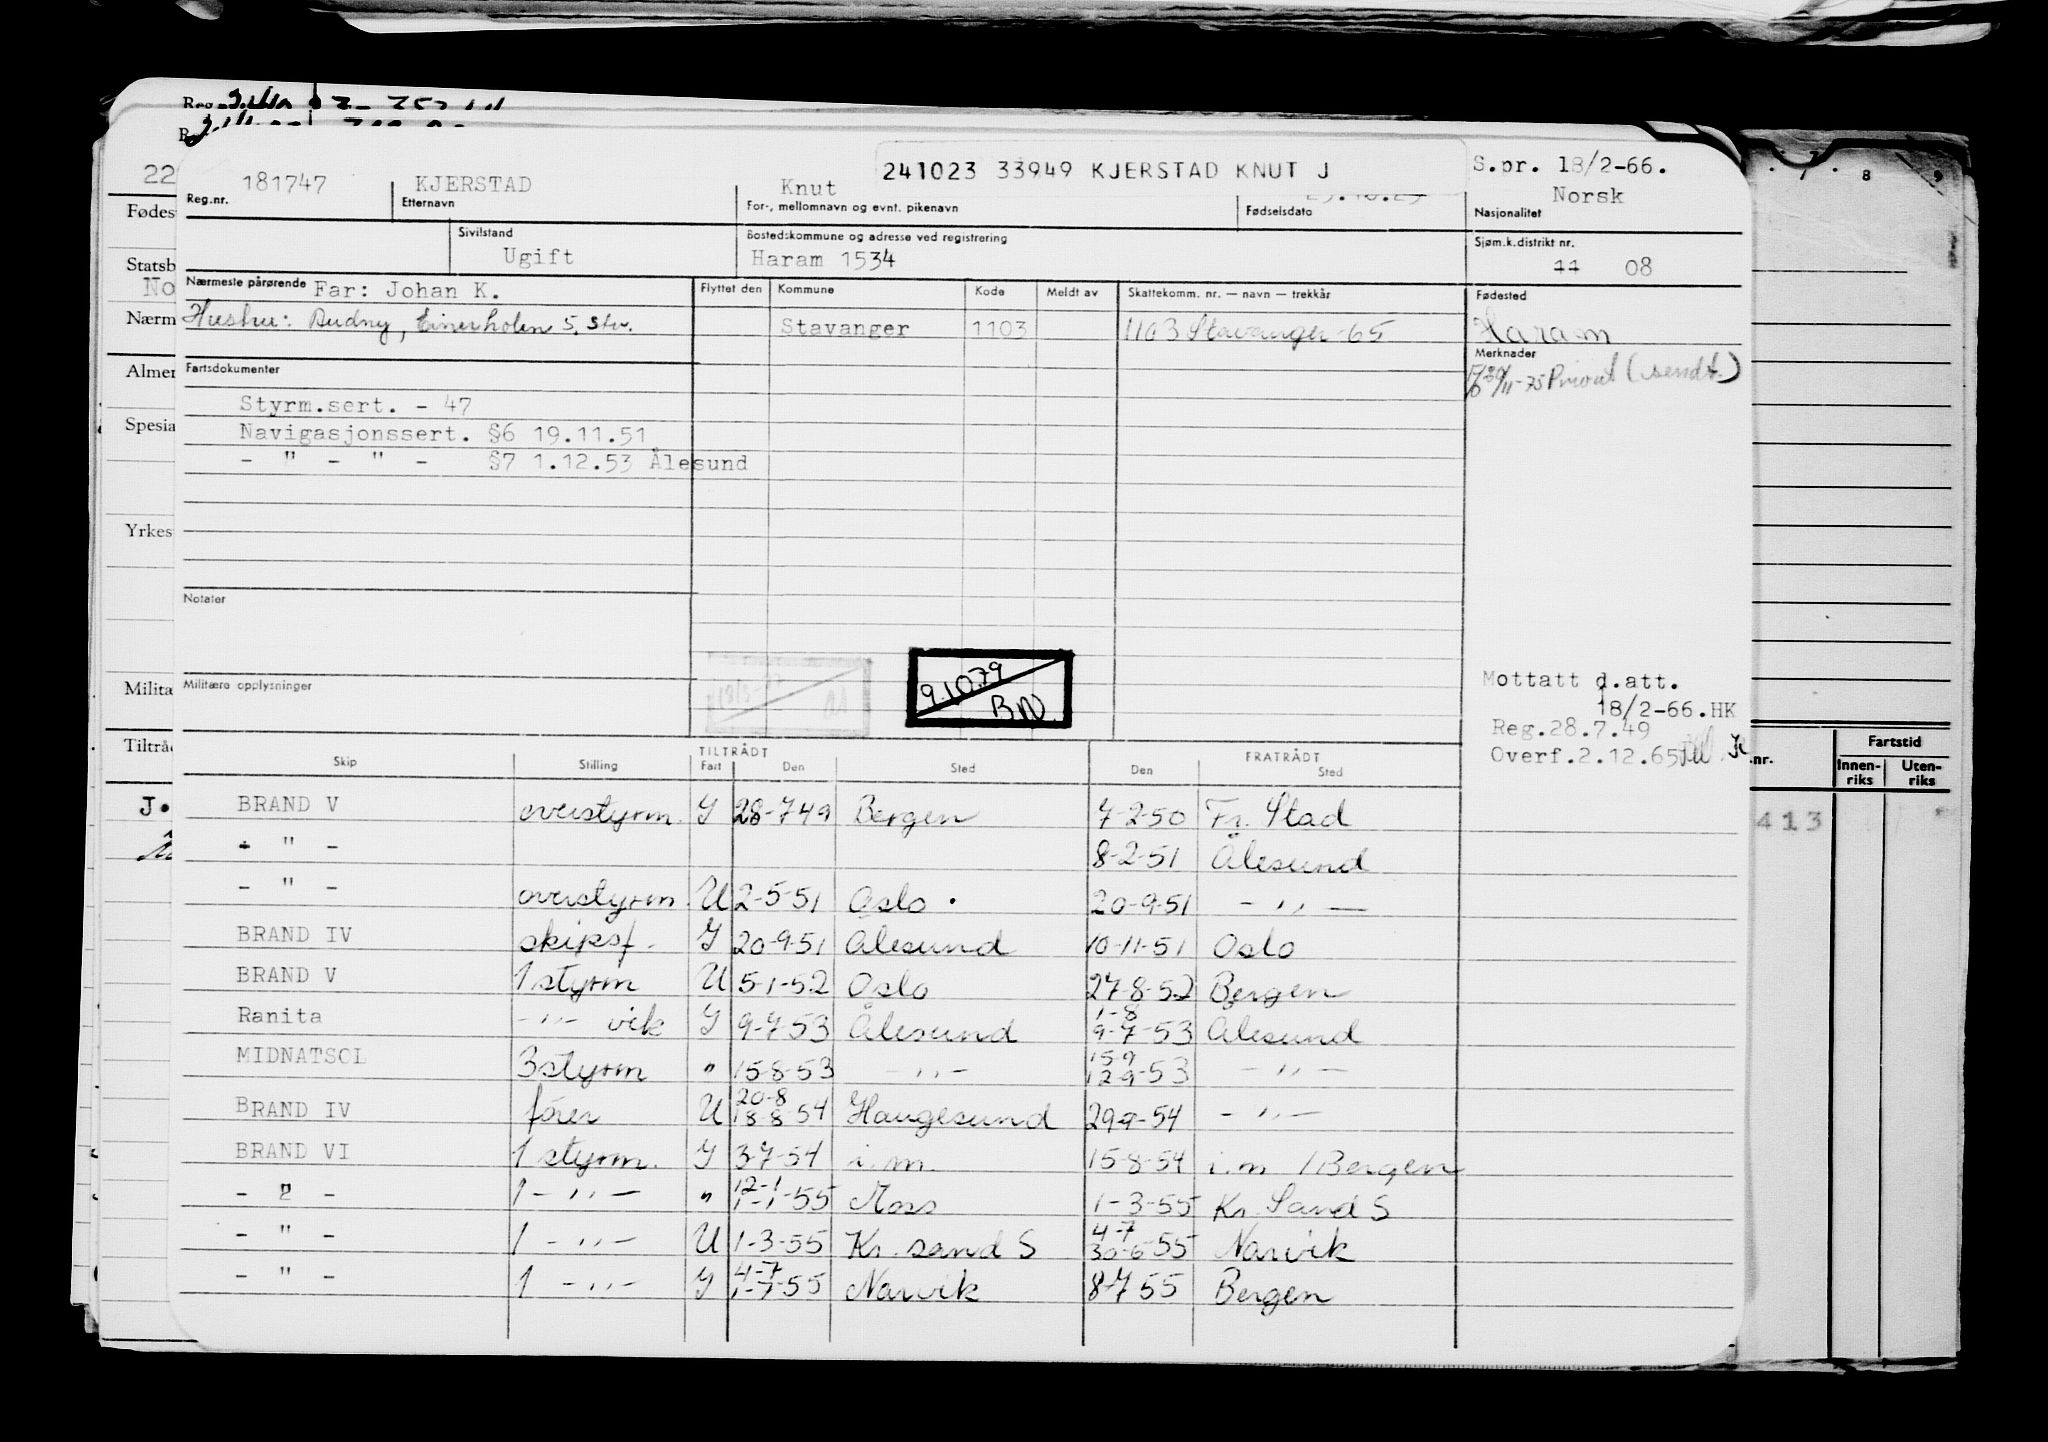 241023 33949 KJERSTAD KNUT J
S.pr. 18/2-66.
22
181747 KJERSTAD Knut Norsk
Reg.nr. Etternavn For-, mellomnavn og evnt. pikenavn Fødselsdato Nasjonalitet
Sivilstand Bostedskommune og adresse ved registrering Sjøm.k.distrikt nr.
Ugift Haram 1534 11 08
Nærmeste pårørende Far: Johan K. Flyttet den Kommune Kode Meldt av Skattekomm. nr. — navn — trekkår Fødested
Hustru: Budny, Einerholen 5, Stv. Stavanger 1103 1103 Stavanger -65 Haram
Merknader
30/11-75 Privat (sendt.)
Fartsdokumenter
Styrm.sert. - 47
Navigasjonssert. §6 19.11.51
- " - " - §7 1.12.53 Ålesund
Notater
9.10.79
BN
Militære opplysninger
Mottatt d.att.
18/2-66.HK
Reg.28.7.49
Overf.2.12.65
TILTRÅDT FRATRÅDT
Skip Stilling Fart Den Sted Den Sted
BRAND V overstyrm. I 28-7 49 Bergen 7-2-50 Fr. Stad
- " - 8-2-51 Ålesund
- " - overstyrm. U 2-5-51 Oslo 20-9-51 - " -
BRAND IV skipsf. I 20-9-51 Ålesund 10-11-51 Oslo
BRAND V 1 styrm U 5-1-52 Oslo 27-8-52 Bergen
1-8
Ranita - " - vik I 9-7 53 Ålesund 9-7-53 Ålesund
15-9
MIDNATSOL 3 styrm " 15-8-53 - " - 12-9-53 - " -
20-8
BRAND IV fører U 18-8-54 Haugesund 29-9-54 - " -
BRAND VI 1 styrm. I 3-7-54 i.m. 15-8-54 i.m / Bergen
12-1
- " - 1 - " - " 1-1-55 Moss 1-3-55 Kr. Sand S
4-7
- " - 1 - " - U 1-3-55 Kr. sand S 30-6-55 Narvik
4-7
- " - 1 - " - I 1-7-55 Narvik 8-7 55 Bergen
Fødes
Statsb
No
Nærm
Almer
Spesia
Yrkes
Militæ
Tiltråd
J.
8 9
nr. Fartstid
Innen-riks Uten-riks
413